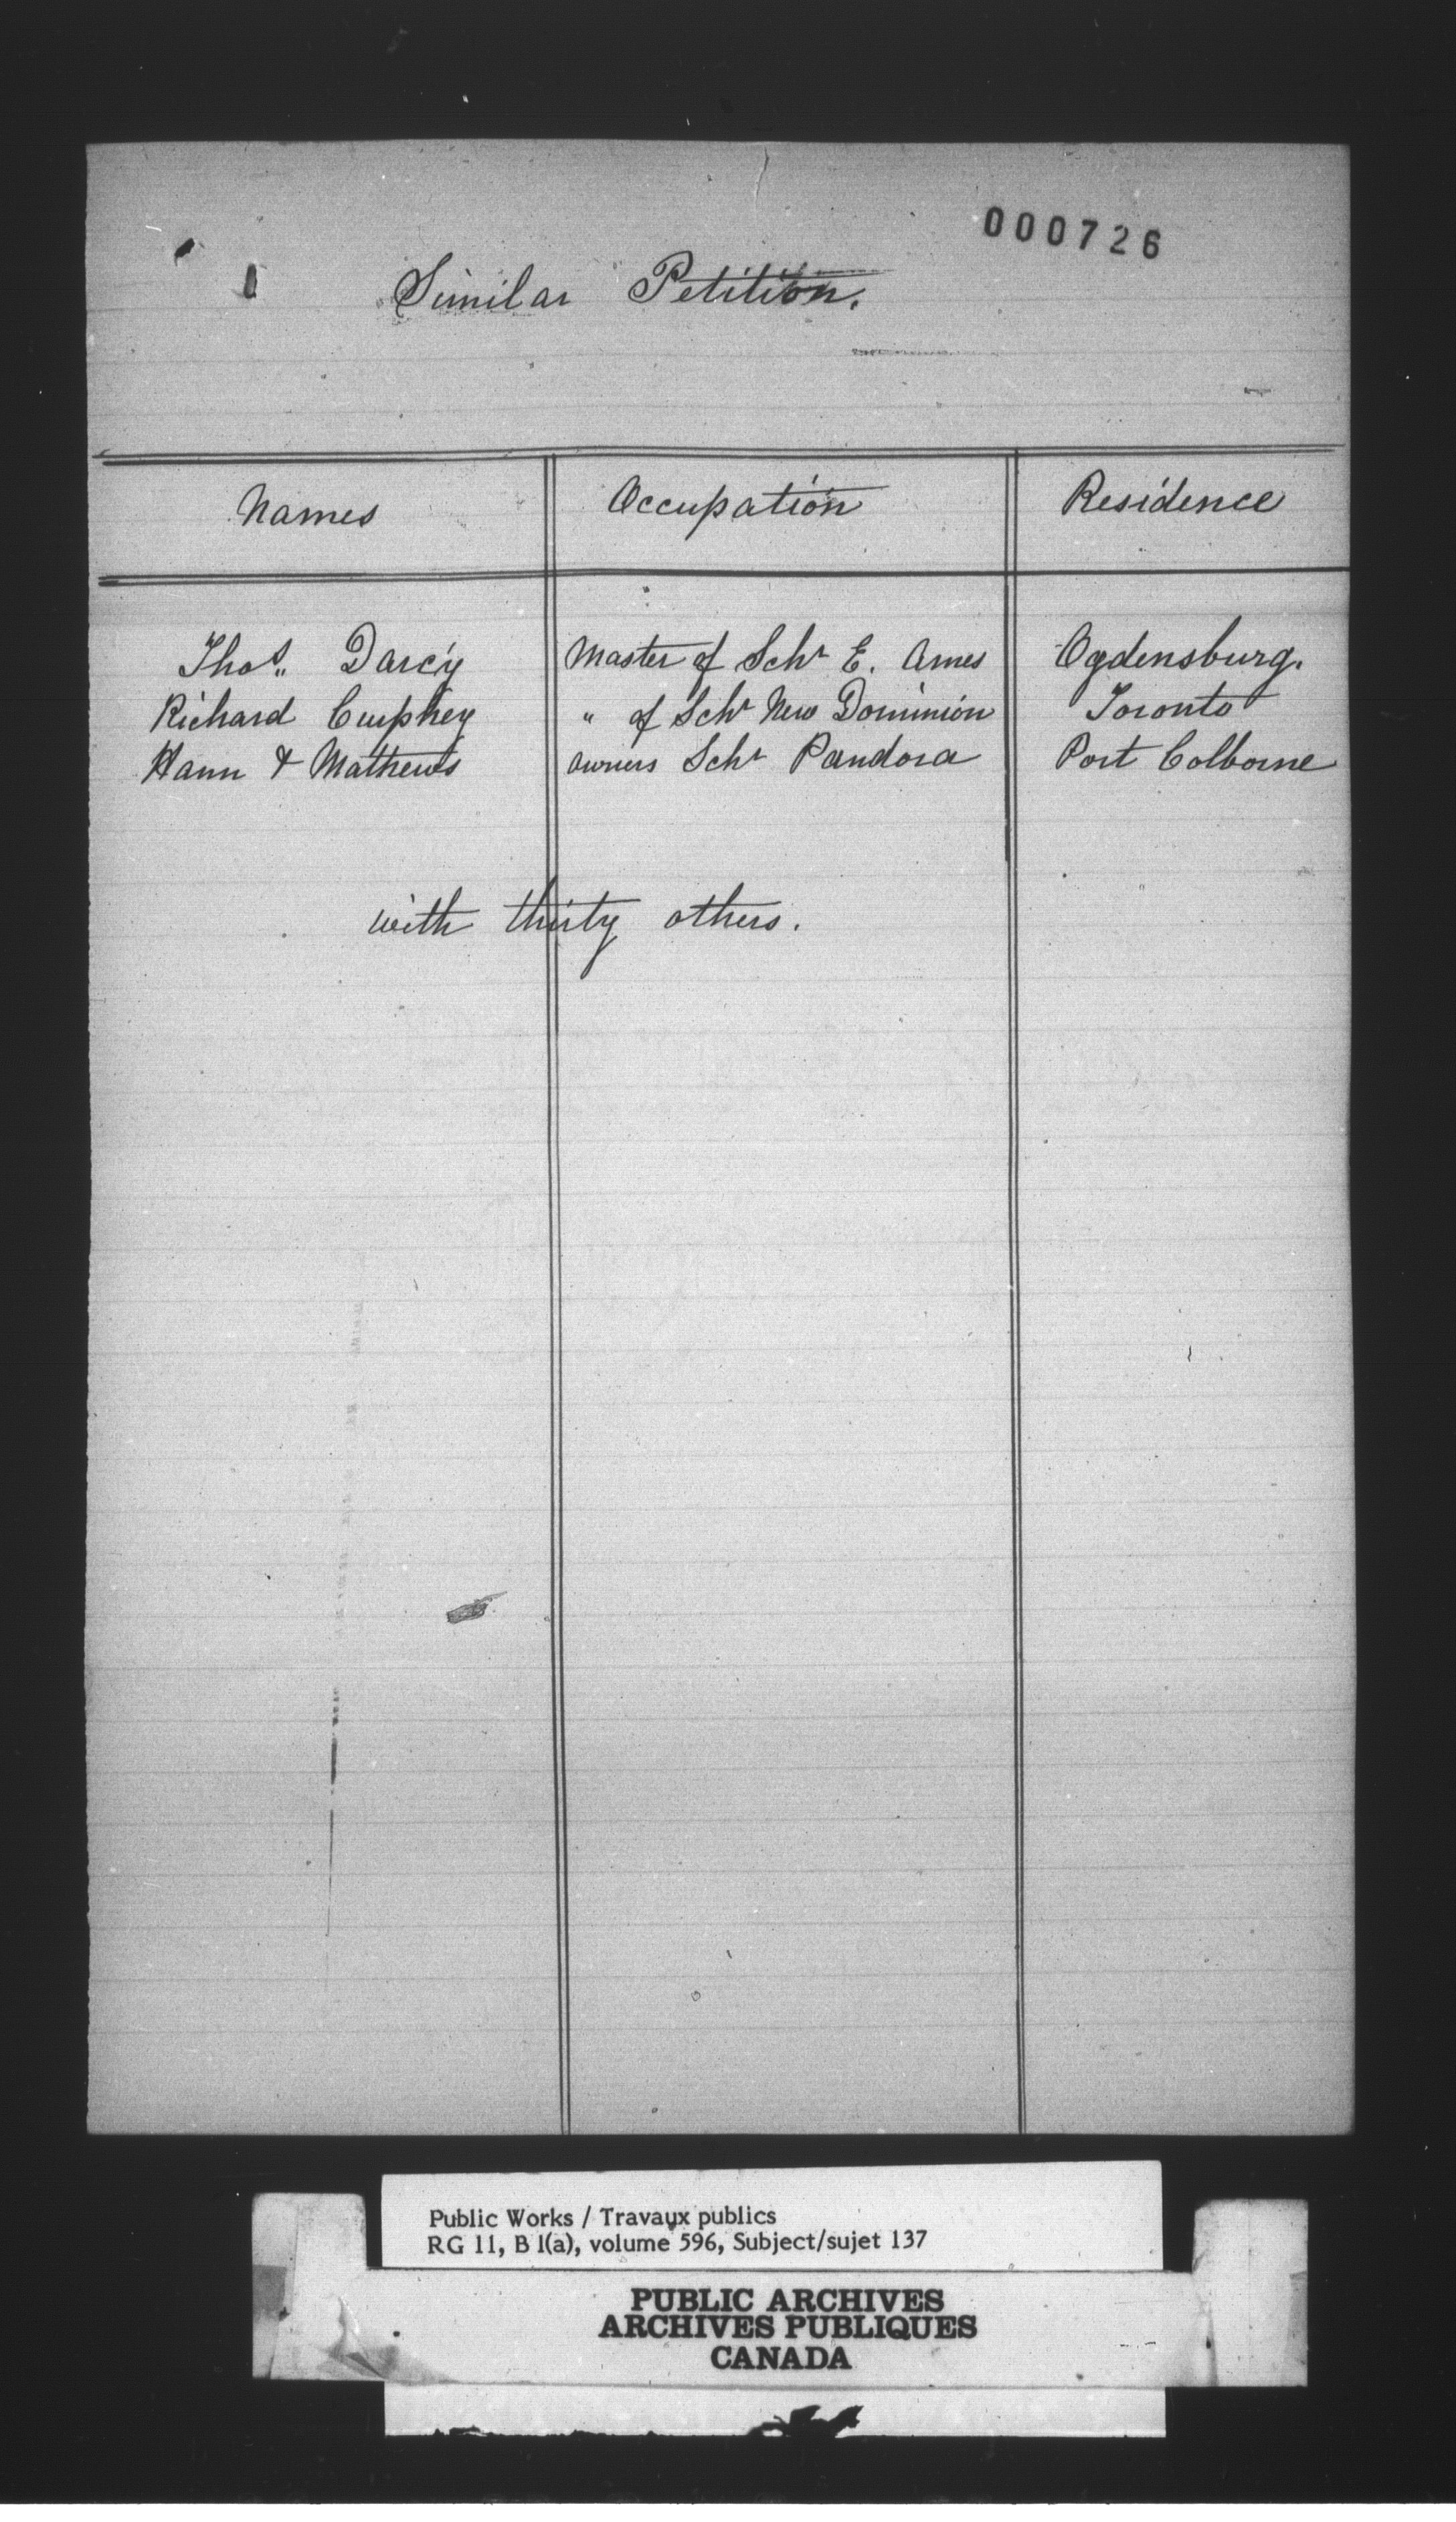 000726
Similar Petition.
Names Occupation Residence
Thos. Darcy Master of Schr E. Ames Ogdensburg.
Richard Cuphey " of Schr New Dominion Toronto
Hann & Mathews owners Schr Pandora Port Colborne
with thirty others.
Public Works / Travaux publics
RG 11, B 1(a), volume 596, Subject/sujet 137
PUBLIC ARCHIVES
ARCHIVES PUBLIQUES
CANADA